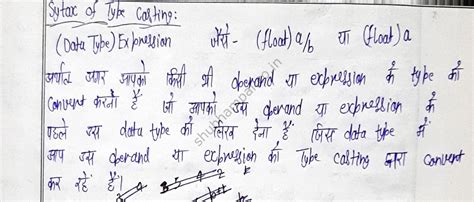 Sytax of Type Casting:
(Data Type) Expression जैसे - (float) a/b या (float) a
अर्थात अगर आपको किसी भी operand या expression के type को
Convert करना है तो आपको उस operand या expression के
पहले उस data type को लिख देना है जिस data type में
आप उस operand या expression को Type casting द्वारा convert
कर रहे हैं।
shubham